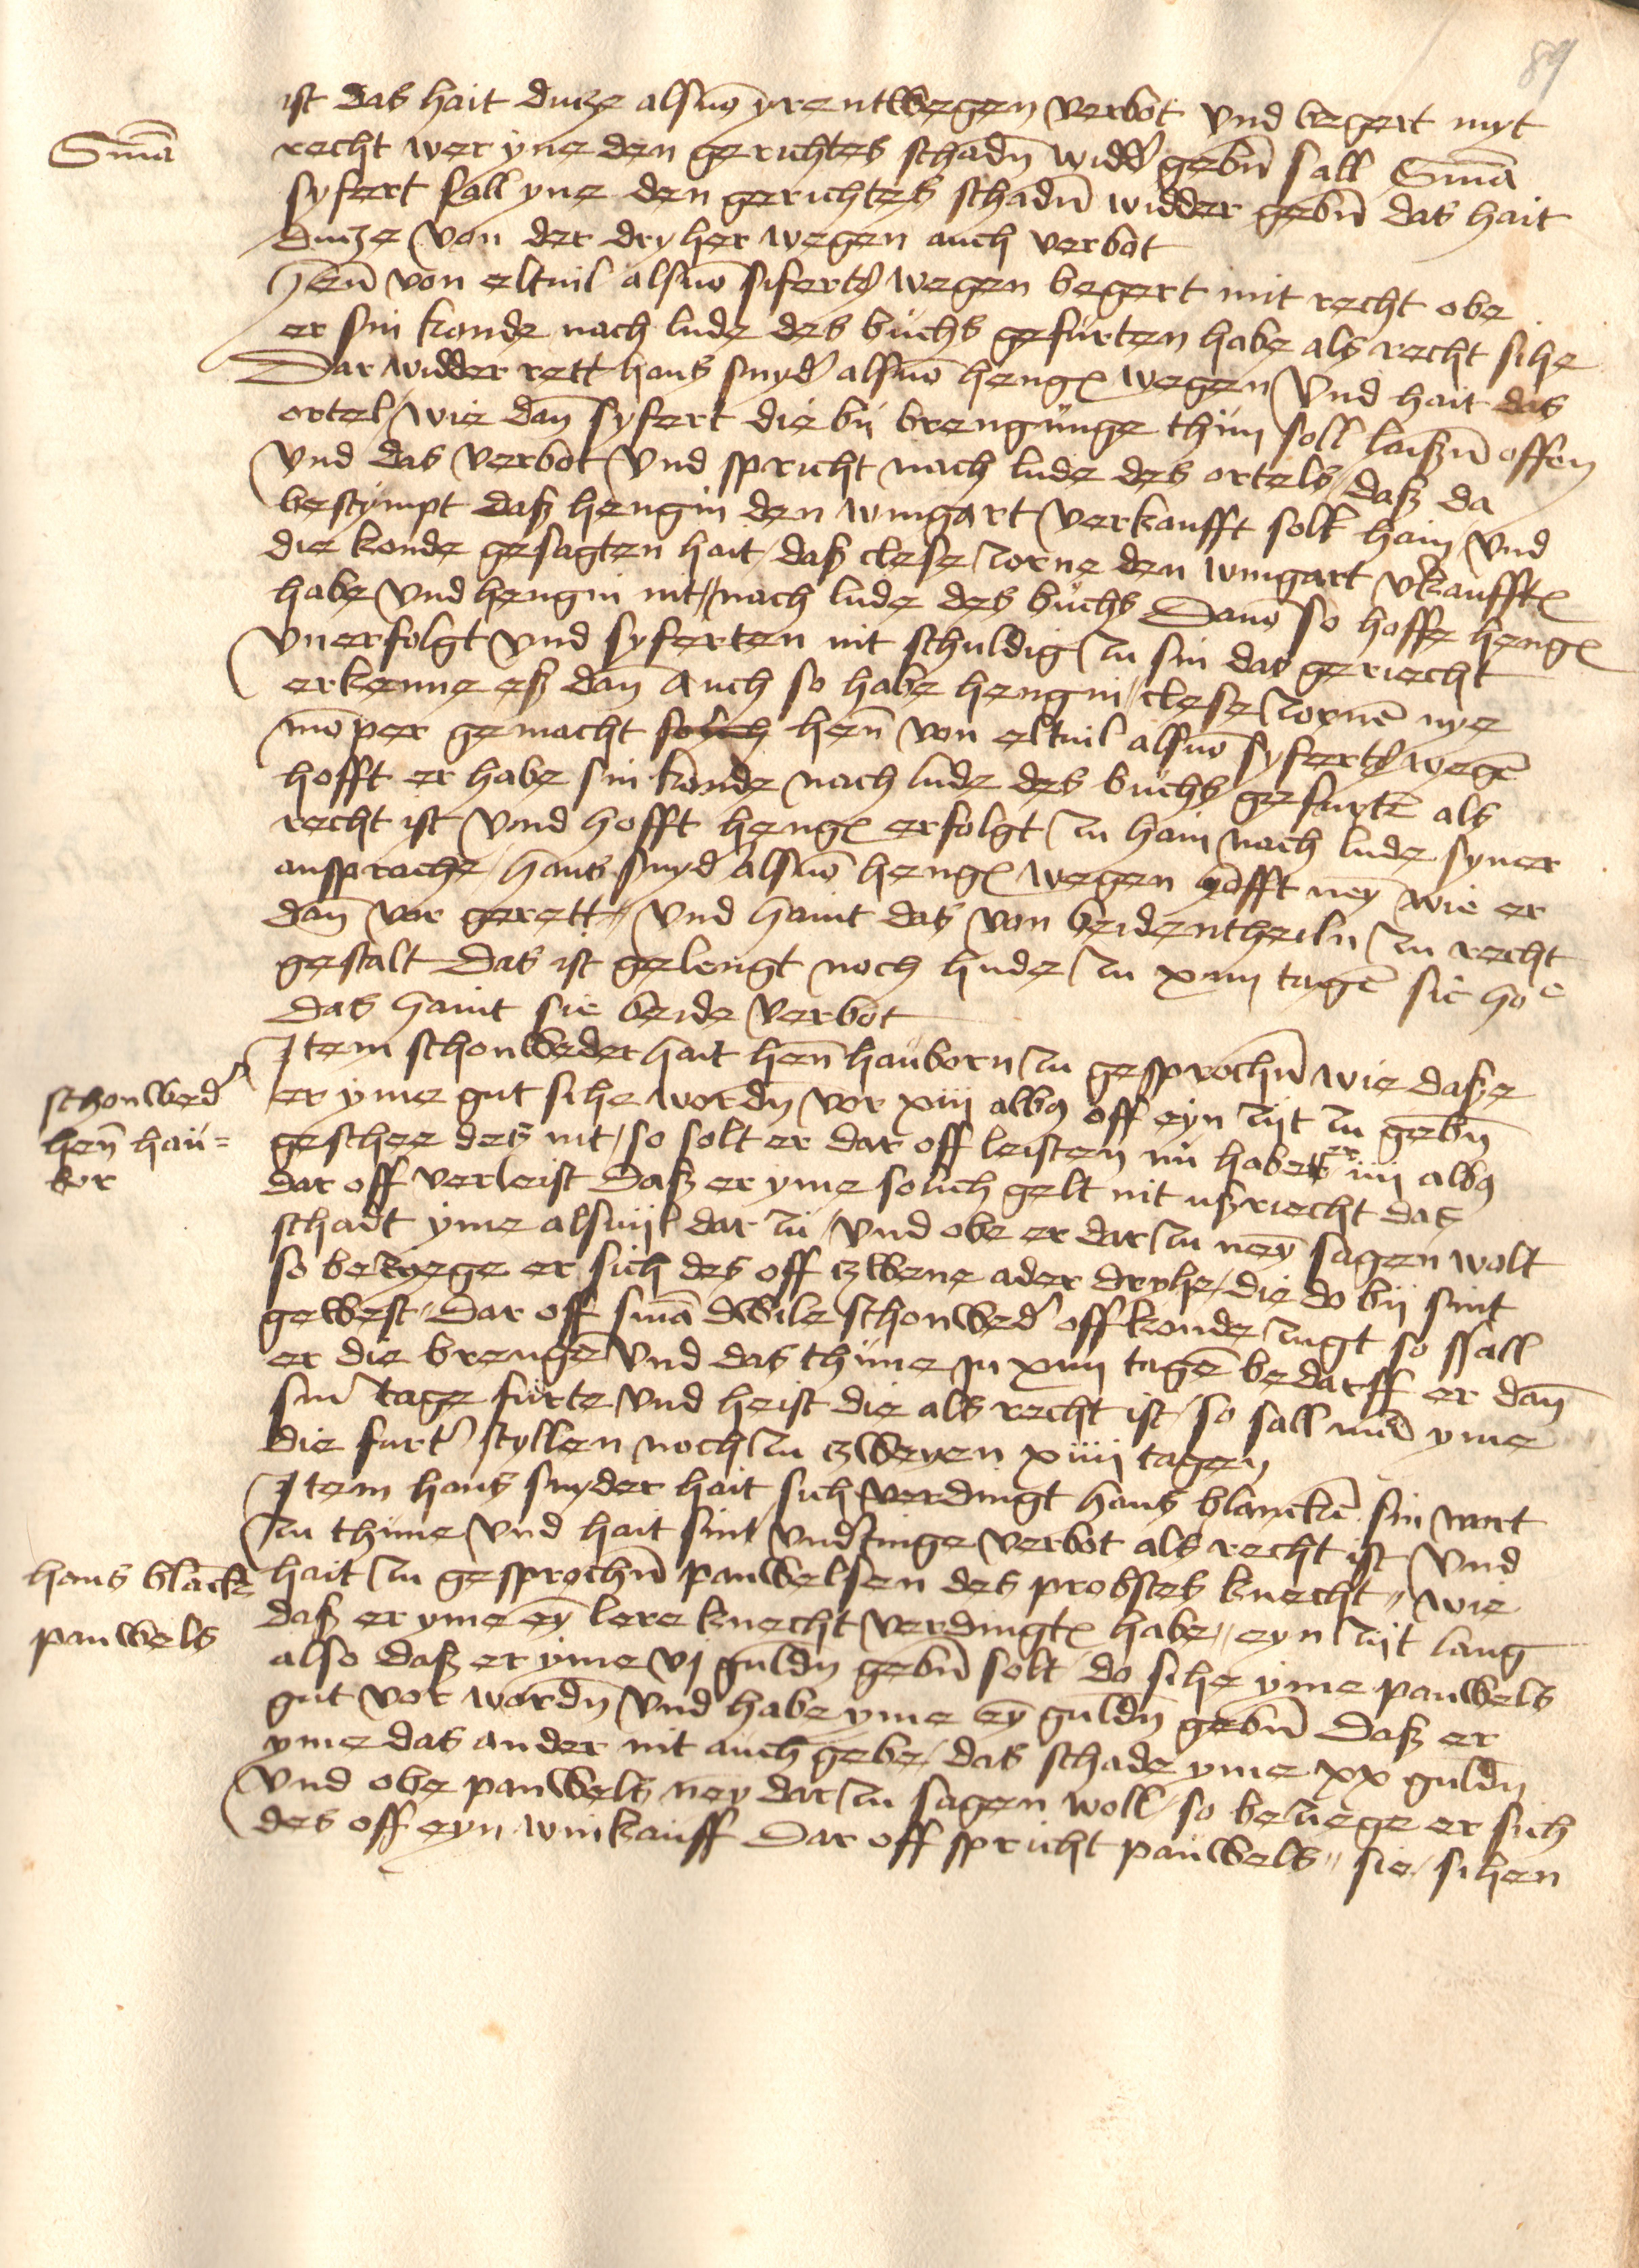 89
ist das hait dincze alsmo yrentwegen verbot und begert myt
Sma̅
recht wer yne den gerichtes schadn̅ widd' gebn̅ sall Sma̅
syfert sall yne den gerichtes schadn̅ widder gebn̅ das hait
dincze von der dryher wegen auch verbot
Hen̅ von eltuil alsmo siferts wegen begert mit recht obe
er sin konde nach lude des buchs gefurten habe als recht sihe
Dar widder rett hans snyd' alsmo heng(in) wegen und hait das
ortel wie dan̅ syfert die by brengunge thun soll laißn̅ offen
und das verbot und spricht nach lude des ortels daß da
bestympt daß hengin den wingart verkaufft solt hain und
die konde gesagten hait daß clese zorne den wingart v'kaufft
habe und hengin nit nach lude des buchs Dan̅o so hoffe heng(in)
unerfolgt und syferten nit schuldig zu sin das geriecht
erkenne eß dan̅ Auch so habe hengin clese zorne̅ nye
mo̅per gemacht solch hen̅ von eltuil alsmo syferts wege̅
hofft er habe sin konde nach lude des buchs gefurte̅ als
recht ist und hofft heng(in) erfolgt zu hain nach lude syner
ansprache hans snyd' alsmo heng(in) wegen hofft ney̅ wie er
dan̅ vor gerett und haint das von beidentheiln zu recht
gestalt Das ist gelengt noch hude zu xiiij tage̅ sic ho̅
das haint sie beide verbot
Item schonweder hait hen̅ hauborn zu gesprochn̅ wie daße
schonwed'
er yme gut sihe wordn̅ vor xiij albq off eyn zijt zu gebn̅
hen̅ hau=
geschee des nit so solt er dar off leisten nu habe er iiij albq
bor
dar off verleist Daß er yme solich gelt nit ußriecht das
schadt yme alsuijl dar zu und obe er dar zu ney̅ sagen wolt
so beziege er sich des off czwene ader dryhe die do by sint
gewest Dar off sma̅ dwile schonwed' off konde zugt so ssall
er die brenge̅ und das thune in xiiij tage̅ bedarff er dan̅
sin tage furte und heist die als recht ist so sall mā yme
die furt' styllen noch zu czweyen xiiij tagen
Item hans snyder hait sich verdingt hans blancke̅ sin wort
zu thune und hait sint underdinge verbot als recht ist und
hans bla̅cke
hait zu gesprochn̅ pauwelsen des probstes knecht wie
pauwels
daß er yme ey̅ lere knecht verdingt habe eyn zijt lang
also daß er yme vj guldn̅ gebn̅ solt do sihe yme pauwels
gut vor wordn̅ und habe yme ey̅ guldn̅ gebn̅ Daß er
yme das ander nit auch gebe das schade yme xx guldn̅
und obe pauwels ney dar zu sagen woll so beziege er sich
des off eyn winkauff Dar off spricht pauwels sie sihen